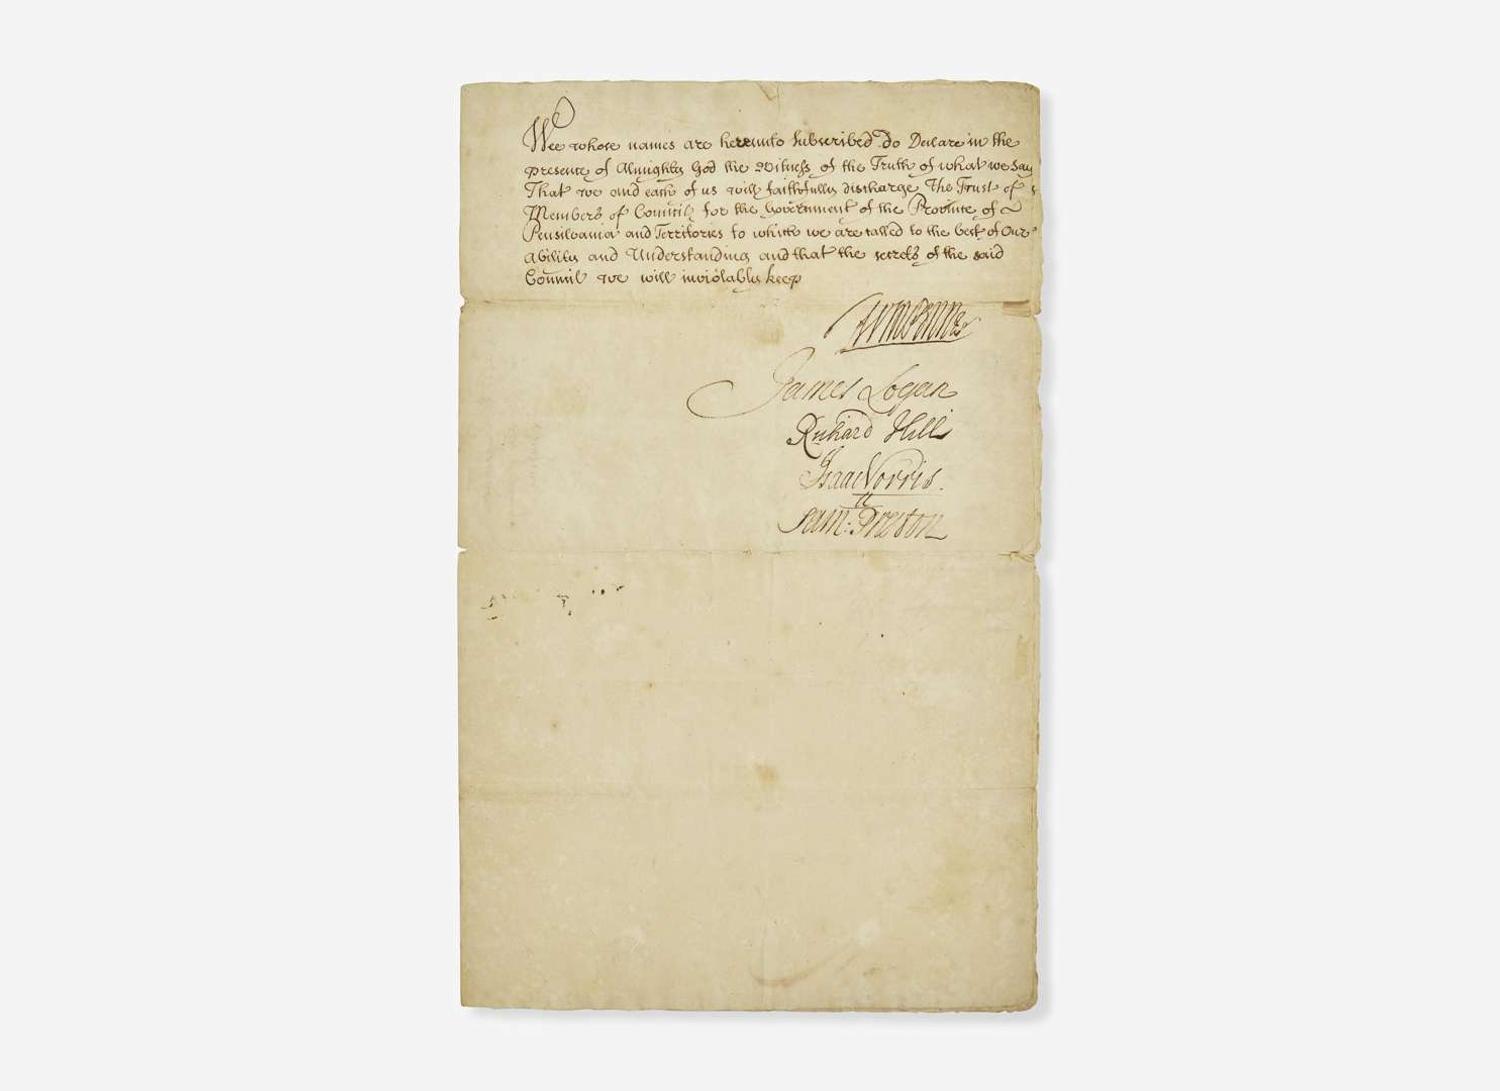 Wee whose names are hereunto subscribed do Declare in the
presence of Almighty God the Witness of the Truth of what we Say
That we and each of us will faithfully discharge The Trust of
Members of Council for the Government of the Province of
Pensilvania and Territories to which we are called to the best of Our
Ability and Understanding and that the secrets of the said
Council we will inviolably keep
Wm Penn
James Logan
Richard Hill
Isaac Norris.
Sam: Preston